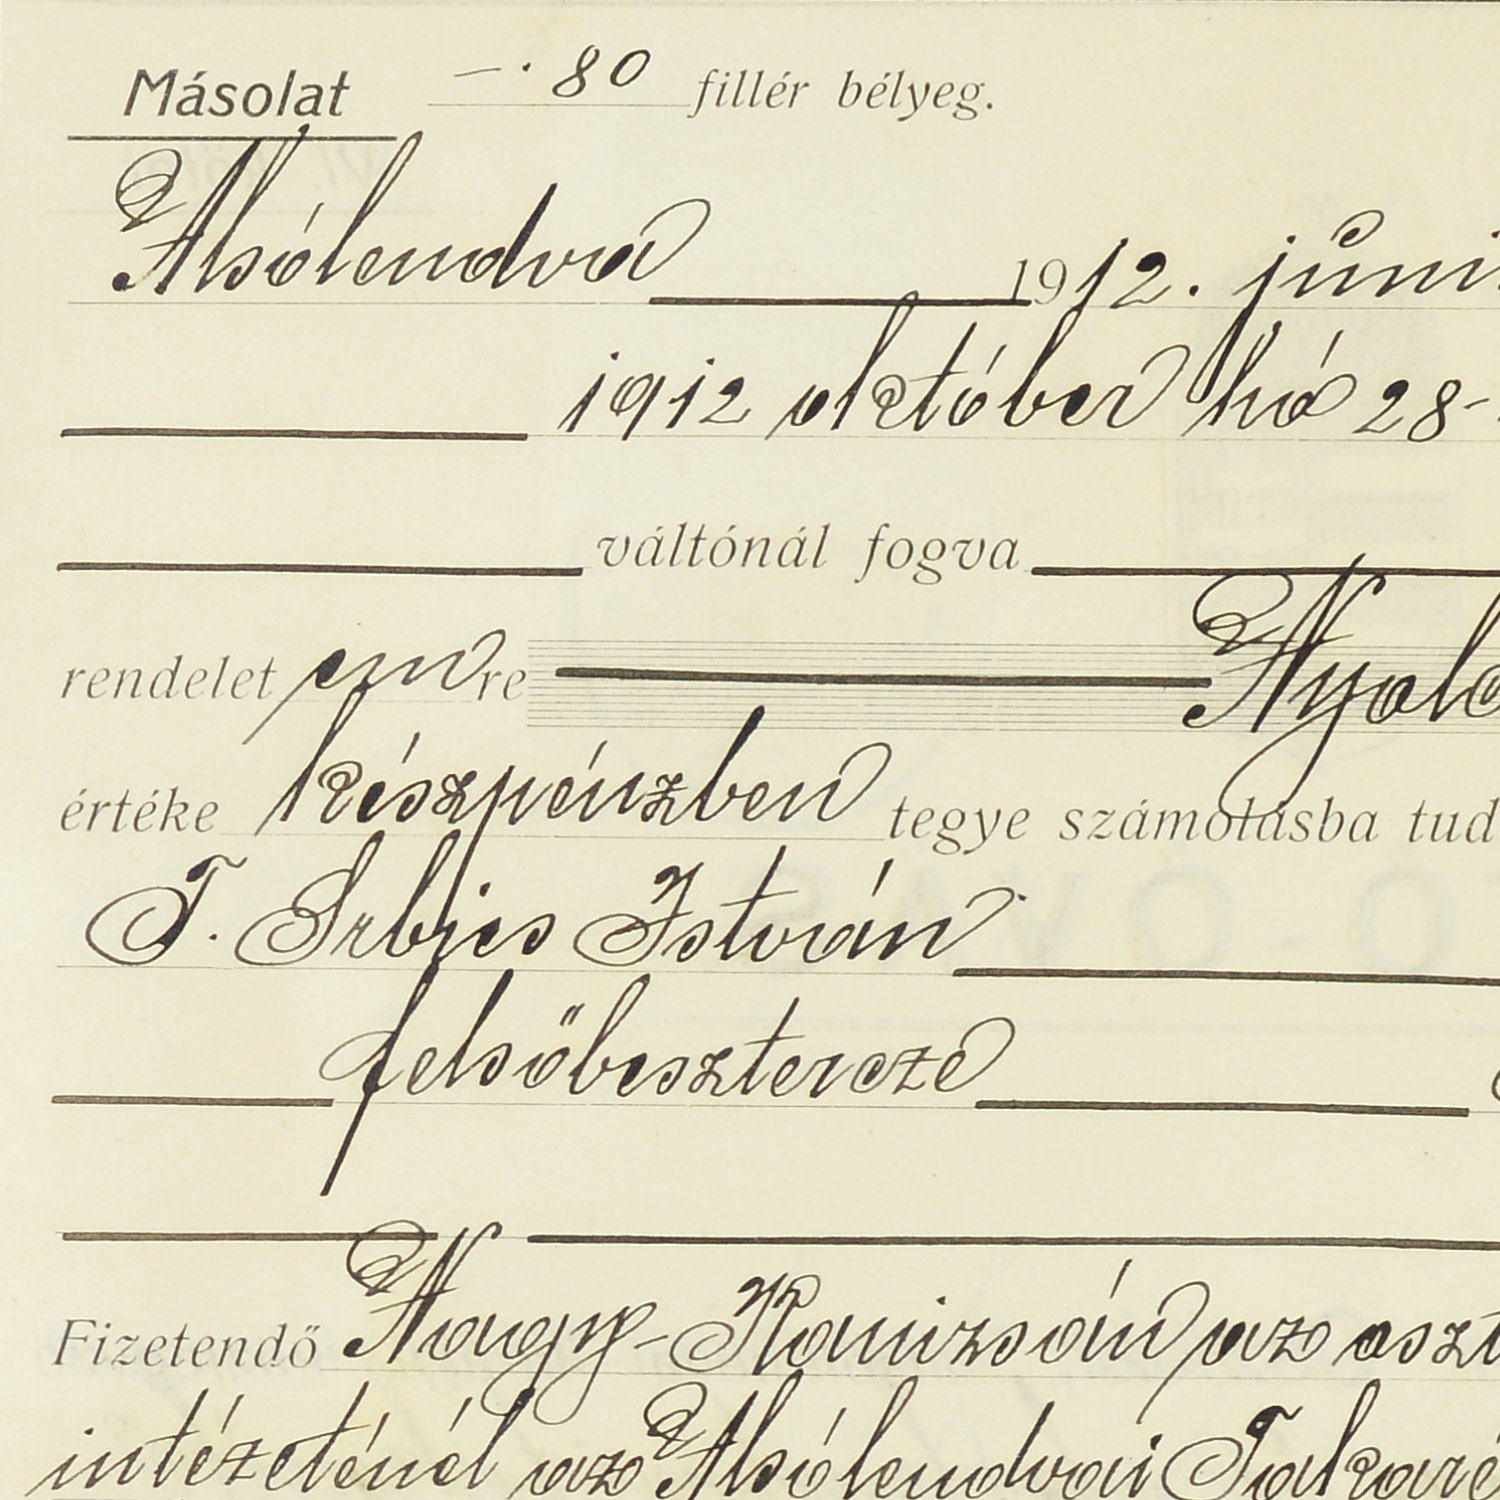 Másolat —·80 fillér bélyeg.
Alsólendva 1912. júni
1912 október hó 28-
váltónál fogva
rendelet em re Nyolc
értéke készpénzben tegye számolásba tud
T. Srbics István
felsőbesztercze
Fizetendő Nagy-Kanizsán az oszt
intézeténél az Alsólendvai Takaré